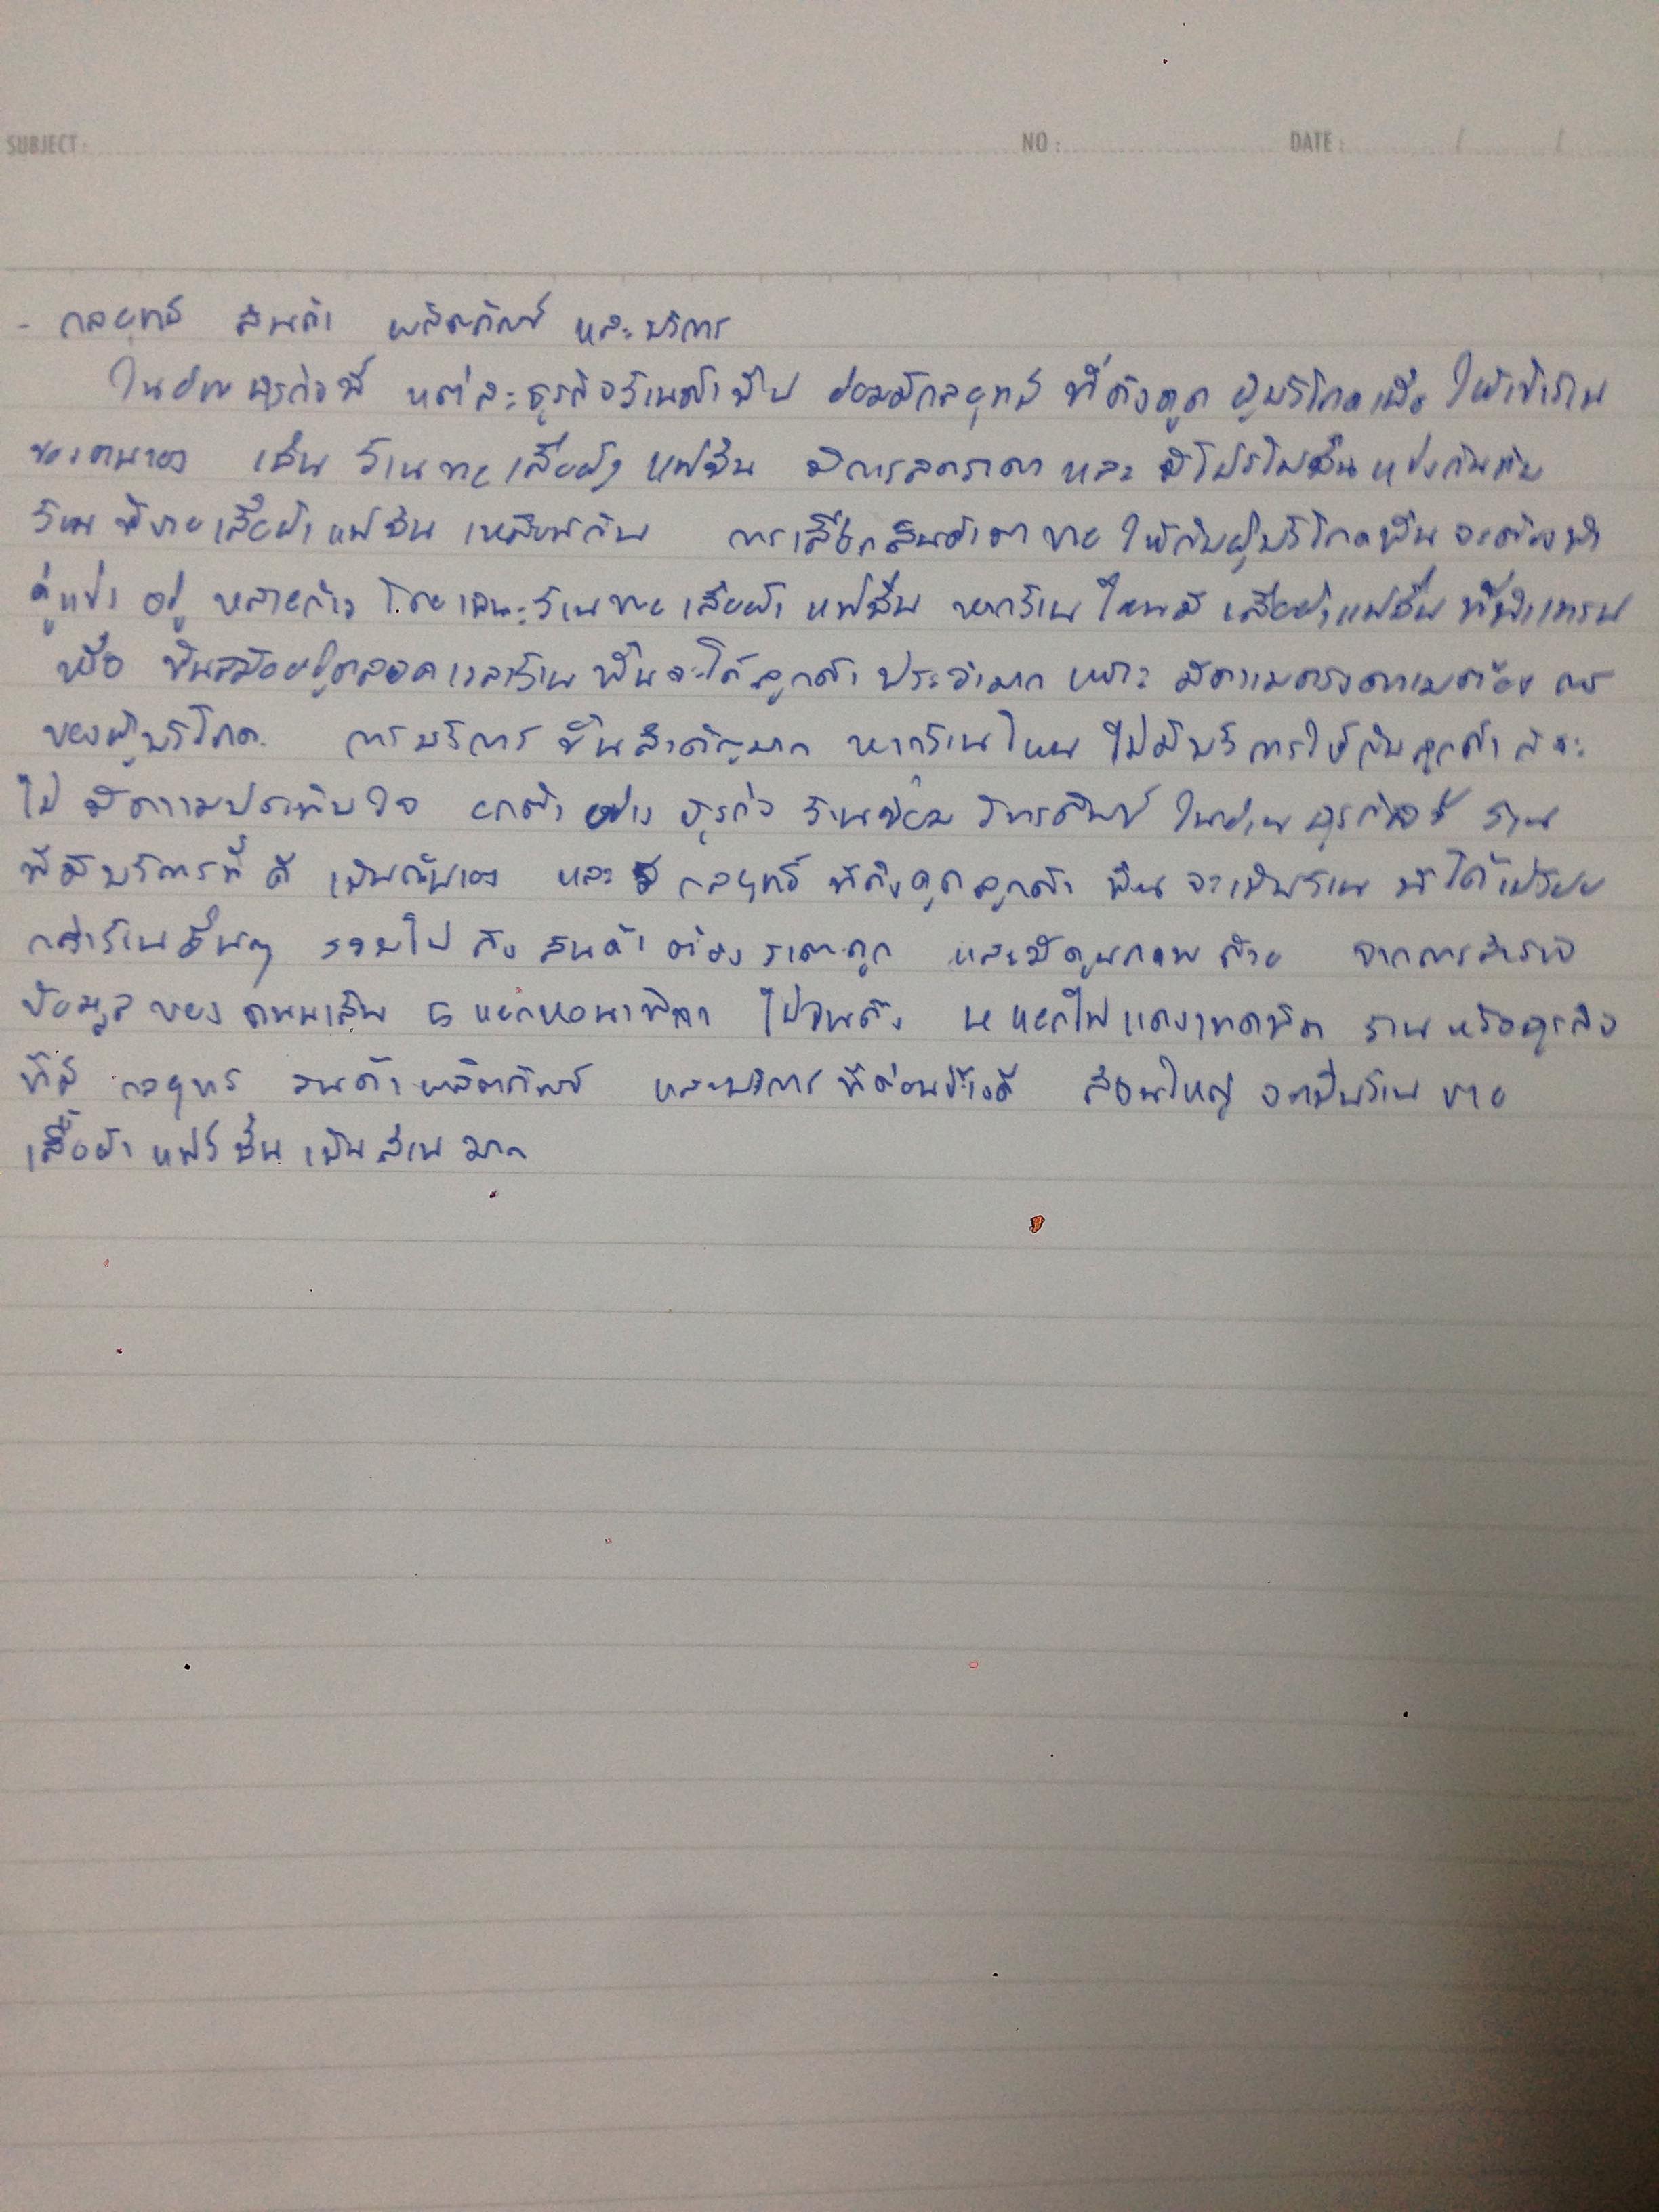 SUBJECT: NO : DATE : / /
- กลยุทธ์ สินค้า ผลิตภัณฑ์ และบริการ
ในย่านธุรกิจนี้ แต่ละธุรกิจร้านค้า ย่อมมีกลยุทธ์ ที่ดึงดูด ผู้บริโภคเพื่อ ให้เข้าร้าน
ของตนเอง เช่น ร้านขายเสื้อผ้า แฟชั่น มีการลดราคา และ มีโปรโมชั่น แข่งกันกับ
ร้านที่ขายเสื้อผ้าแฟชั่น เหมือนกัน การเลือกสินค้ามาขาย ให้กับผู้บริโภคนั้น จะต้องนำ
คู่แข่ง อยู่ หลายก้าว โดยเฉพาะร้านขายเสื้อผ้า แฟชั่น หากร้านไหนมี เสื้อผ้าแฟชั่น ที่นำเทรน
หรือ ทันสมัยอยู่ตลอดเวลาร้านนั้นจะได้ลูกค้าประจำมาก เพราะ มีความตรงตามต้องการ
ของผู้บริโภค การบริการ นั้นสำคัญมาก หากร้านไหน ไม่มีบริการให้กับลูกค้า ก็จะ
ไม่ มีความประทับใจ ยกตัวอย่าง ธุรกิจ ร้านซ่อม โทรศัพท์ ในย่านธุรกิจนี้ ร้าน
ที่มีบริการที่ดี เป็นกันเอง และมี กลยุทธ์ ที่ดึงดูดลูกค้า นั้น จะเป็นร้าน ที่ได้เปรียบ
กว่าร้านอื่นๆ รวมไป ถึง สินค้า ต้อง ราคาถูก และมีคุณภาพด้วย จากการสำรวจ
ข้อมูลของ ถนนเส้น แยกหอนาฬิกา ไปจนถึง แยกไฟแดง ร้านหรือธุรกิจ
ที่มี กลยุทธ์ สินค้าผลิตภัณฑ์ และบริการที่ค่อนข้างดี ส่วนใหญ่ จะเป็นร้าน ขาย
เสื้อผ้า แฟร์ชั่น เป็นส่วน มาก